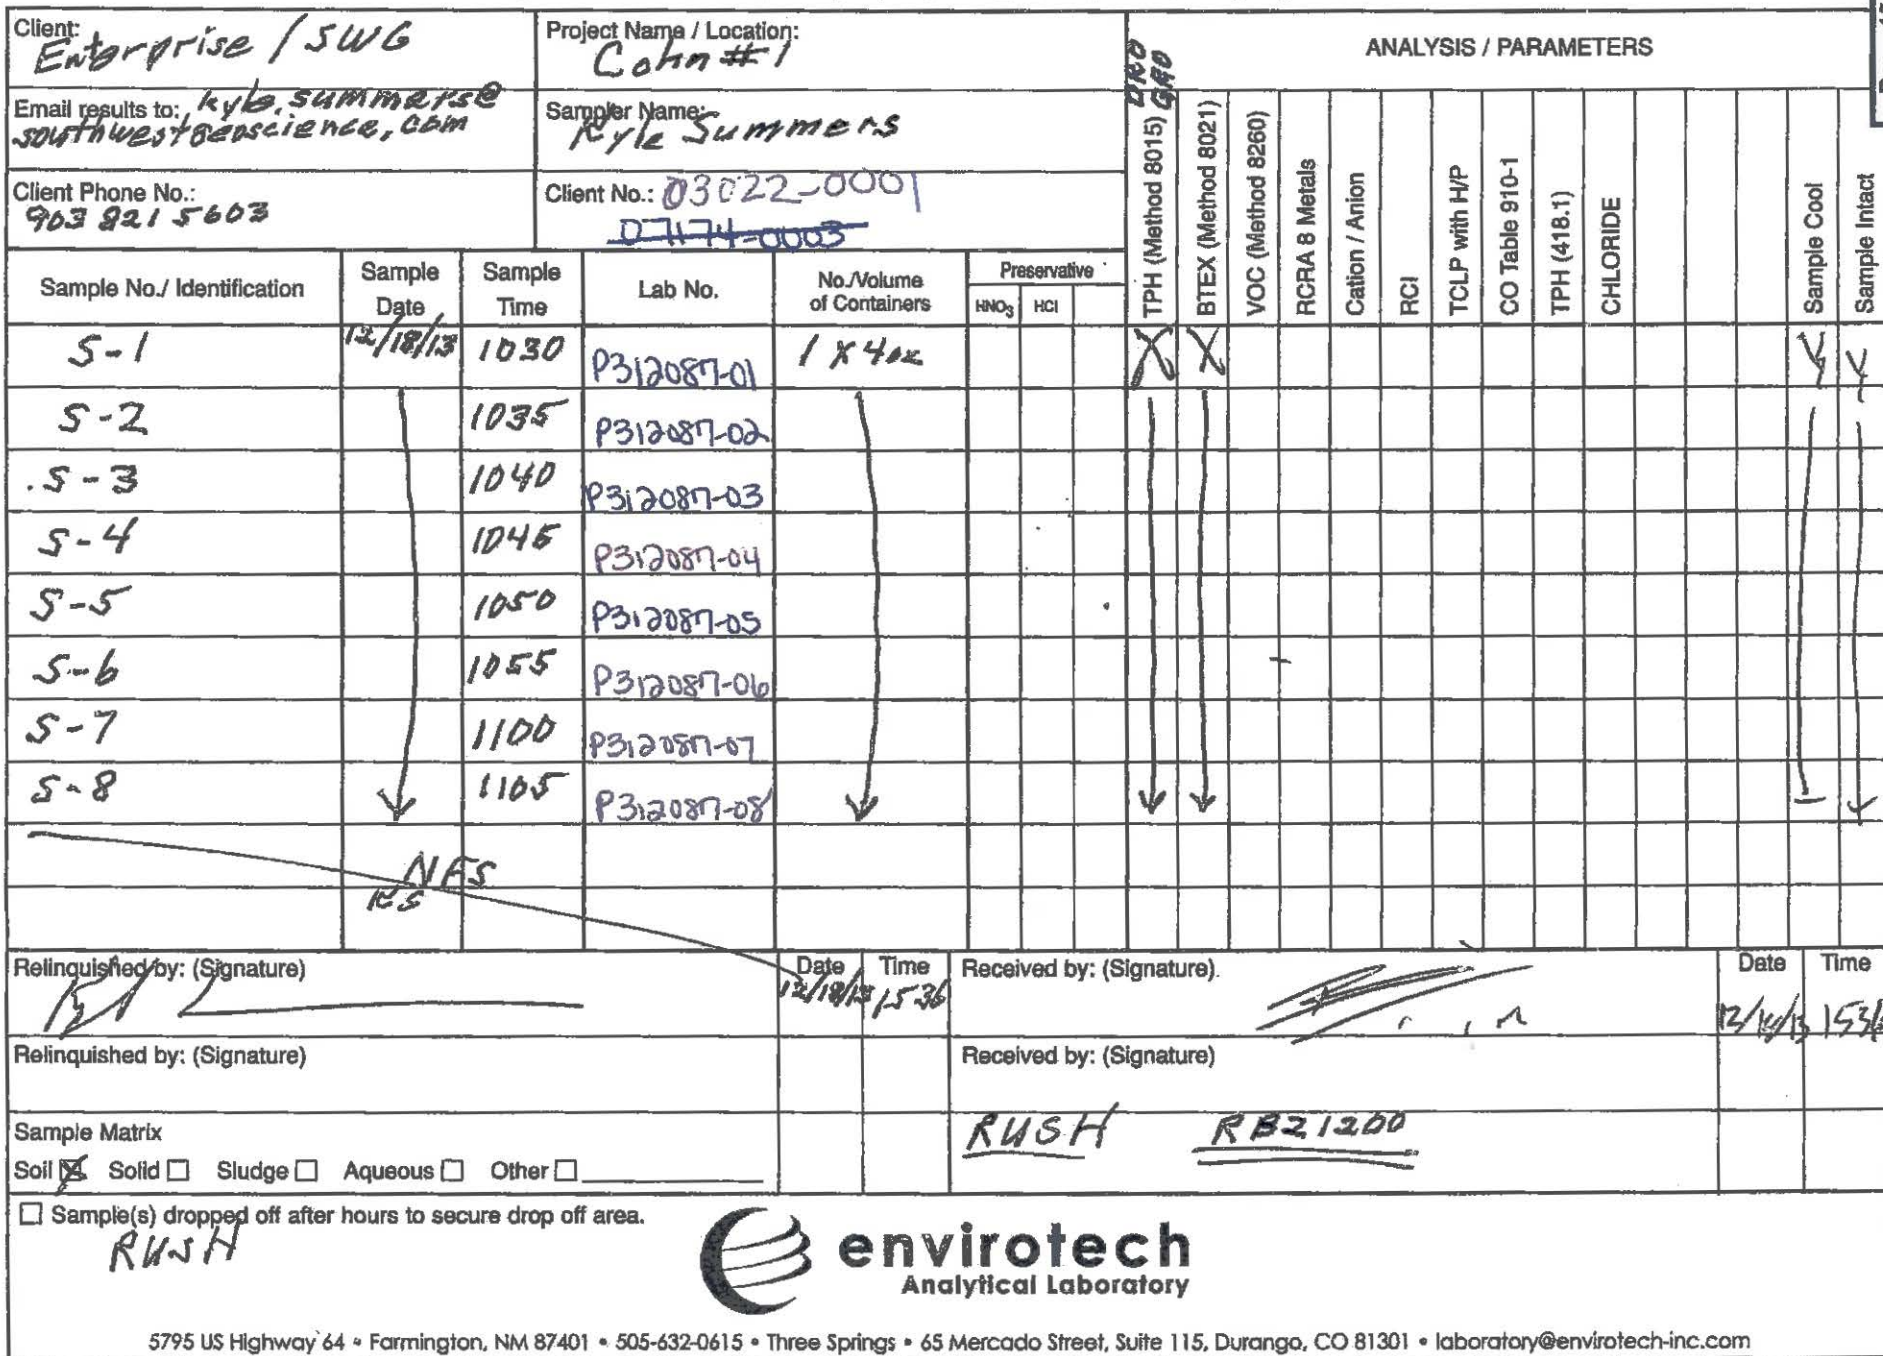 Client: Enterprise / SWG
Project Name / Location: Cohn #1
ANALYSIS / PARAMETERS
Email results to: kyle.summers@
southwestgeoscience.com
Sampler Name: Kyle Summers
Client Phone No.: 903 821 5603
Client No.: 03022-0001
07174-0003
Sample No./ Identification
Sample Date
Sample Time
Lab No.
No./Volume of Containers
Preservative
HNO3 HCl
DRO
GRO
TPH (Method 8015)
BTEX (Method 8021)
VOC (Method 8260)
RCRA 8 Metals
Cation / Anion
RCI
TCLP with H/P
CO Table 910-1
TPH (418.1)
CHLORIDE
Sample Cool
Sample Intact
S-1 12/18/13 1030 P312087-01 1 X 4oz X X Y Y
S-2 1035 P312087-02
S-3 1040 P312087-03
S-4 1045 P312087-04
S-5 1050 P312087-05
S-6 1055 P312087-06
S-7 1100 P312087-07
S-8 1105 P312087-08
NFS
KS
Relinquished by: (Signature) Date Time Received by: (Signature) Date Time
12/18/13 1536
Relinquished by: (Signature) Received by: (Signature)
Sample Matrix
RUSH RB21200
Soil Solid Sludge Aqueous Other
Sample(s) dropped off after hours to secure drop off area.
RUSH
envirotech
Analytical Laboratory
5795 US Highway 64 • Farmington, NM 87401 • 505-632-0615 • Three Springs • 65 Mercado Street, Suite 115, Durango, CO 81301 • laboratory@envirotech-inc.com